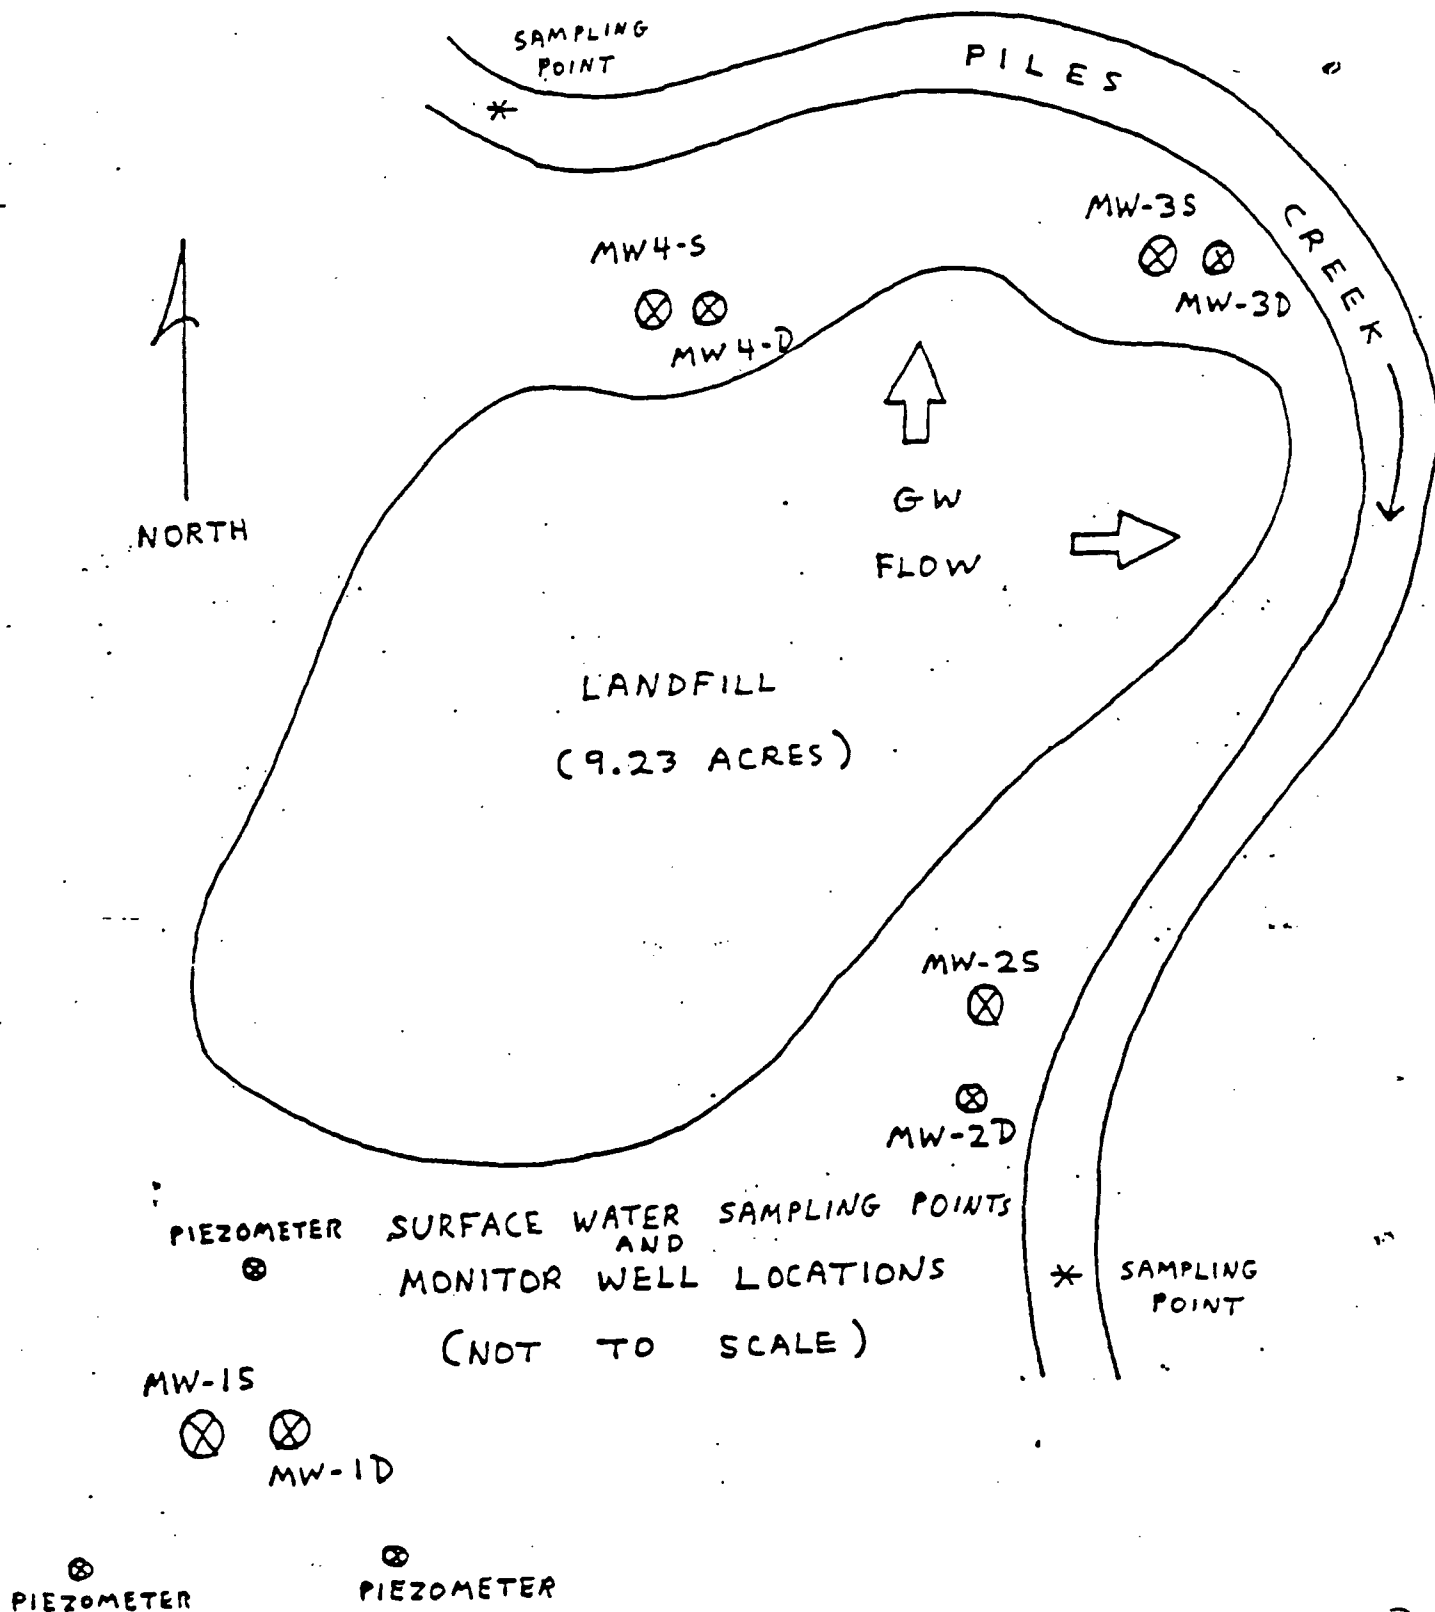 SAMPLING
POINT
PILES
CREEK
MW-3S
MW-3D
MW4-S
MW4-D
NORTH
GW
FLOW
LANDFILL
(9.23 ACRES)
MW-2S
MW-2D
PIEZOMETER
SURFACE WATER SAMPLING POINTS
AND
MONITOR WELL LOCATIONS
(NOT TO SCALE)
SAMPLING
POINT
MW-1S
MW-1D
PIEZOMETER
PIEZOMETER